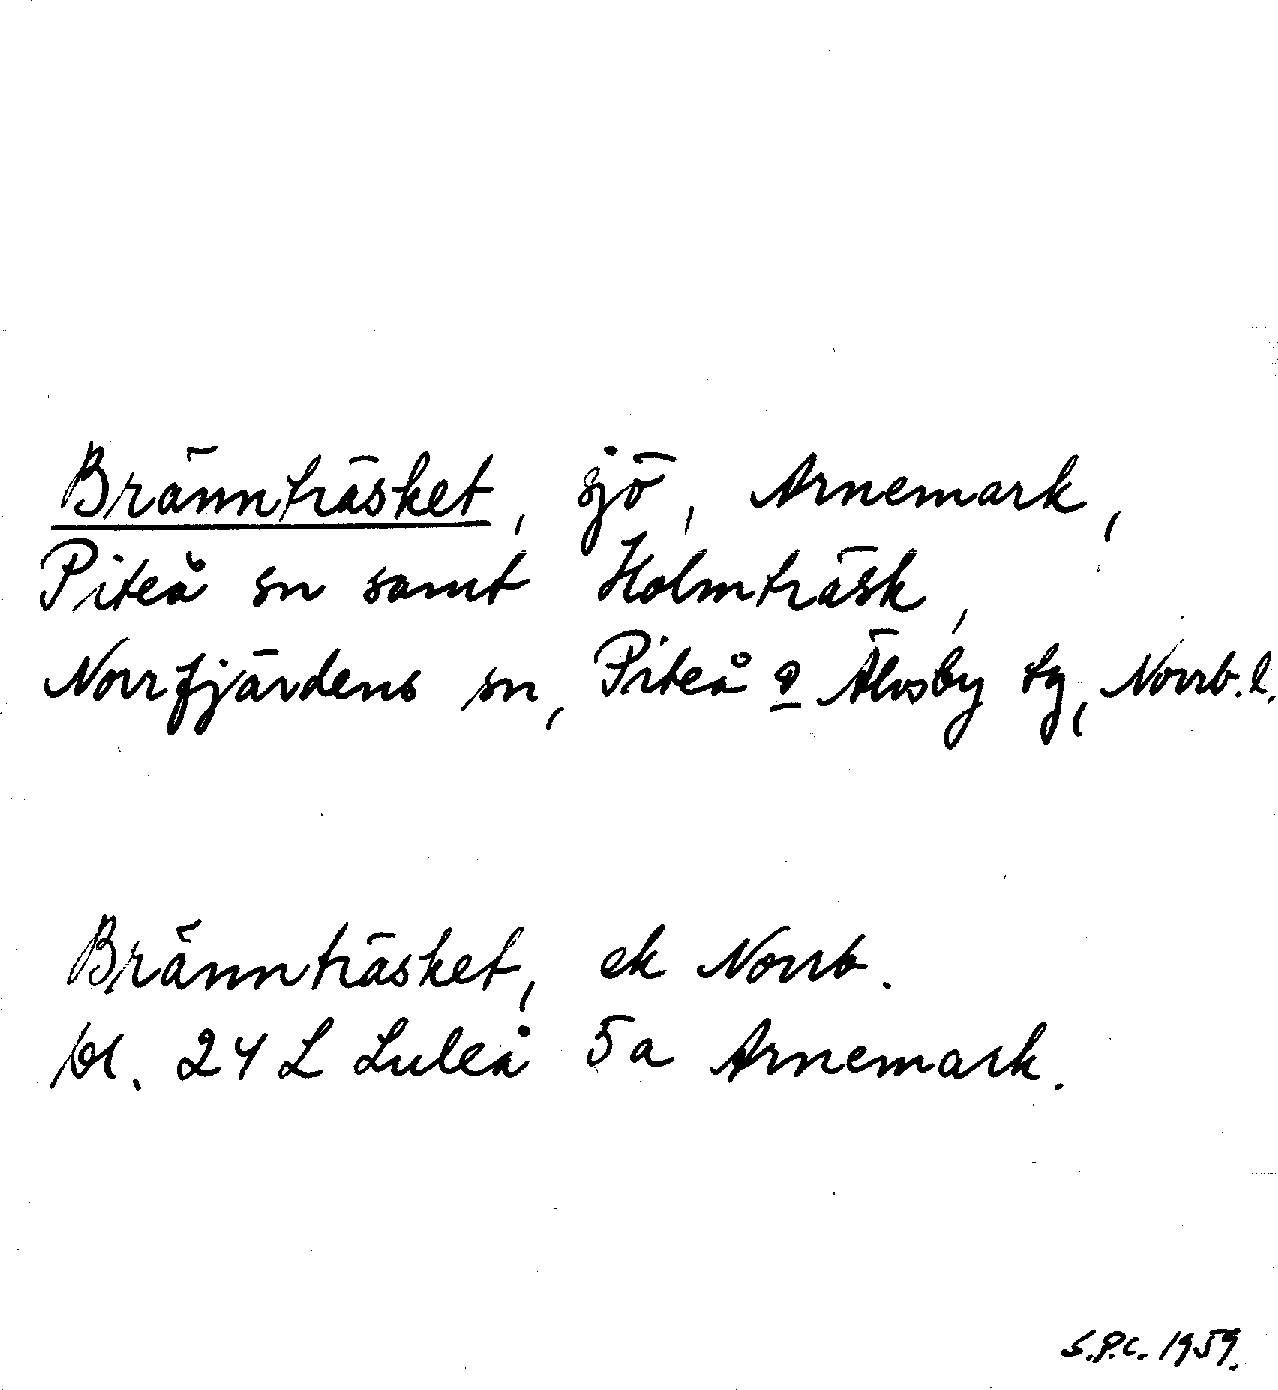 Brännträsket, sjö, Arnemark,
Piteå sn samt Holmträsk,
Norrfjärdens sn, Piteå o Älvsby tg, Norrb. l.
Brännträsket, ek Norrb.
bl. 24 L Luleå 5a Arnemark.
S.P.C. 1959.